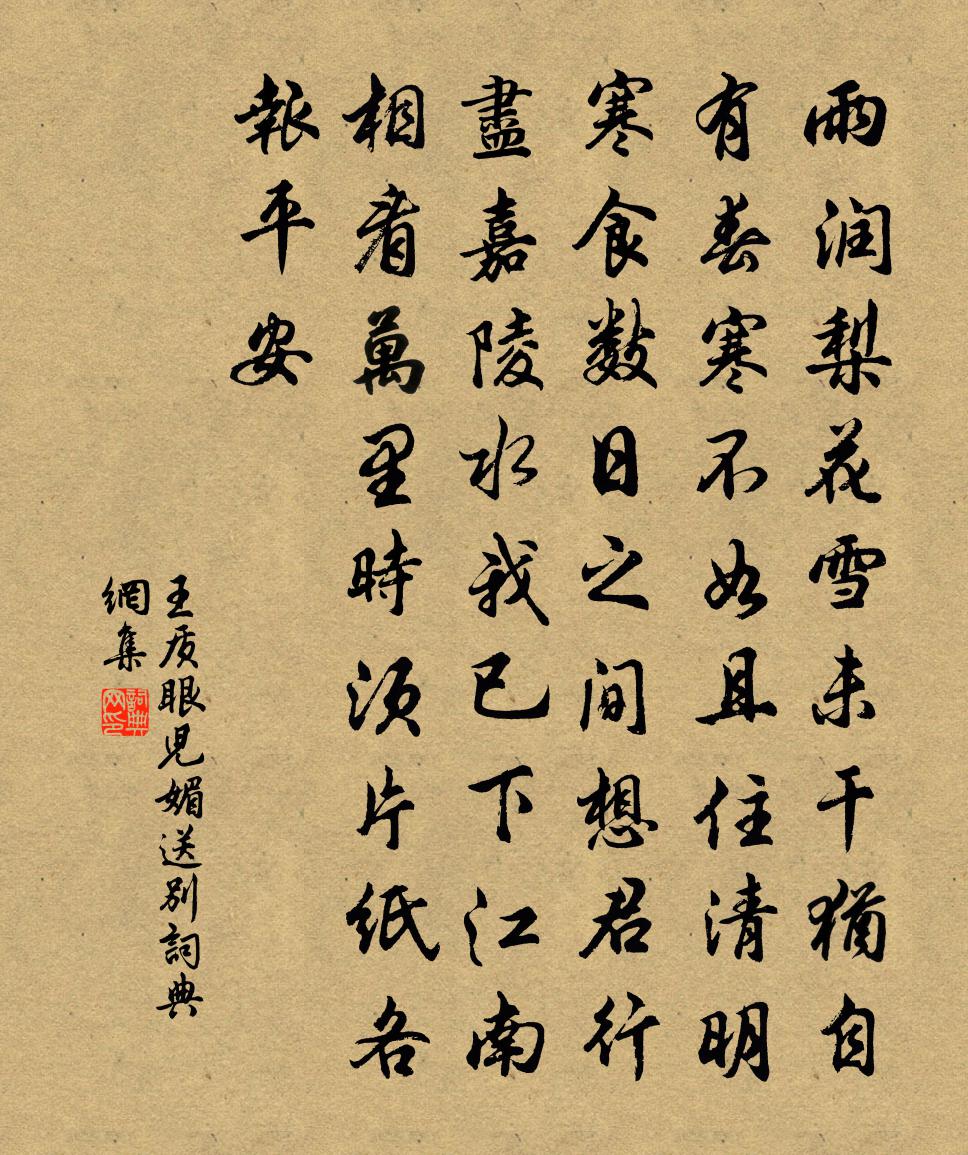 雨润梨花雪未干猶自
有春寒不如且住清明
寒食數日之間想君行
盡嘉陵水我已下江南
相看萬里時須片紙各
報平安
王质眼児媚送别詞典
網集
詞典网印